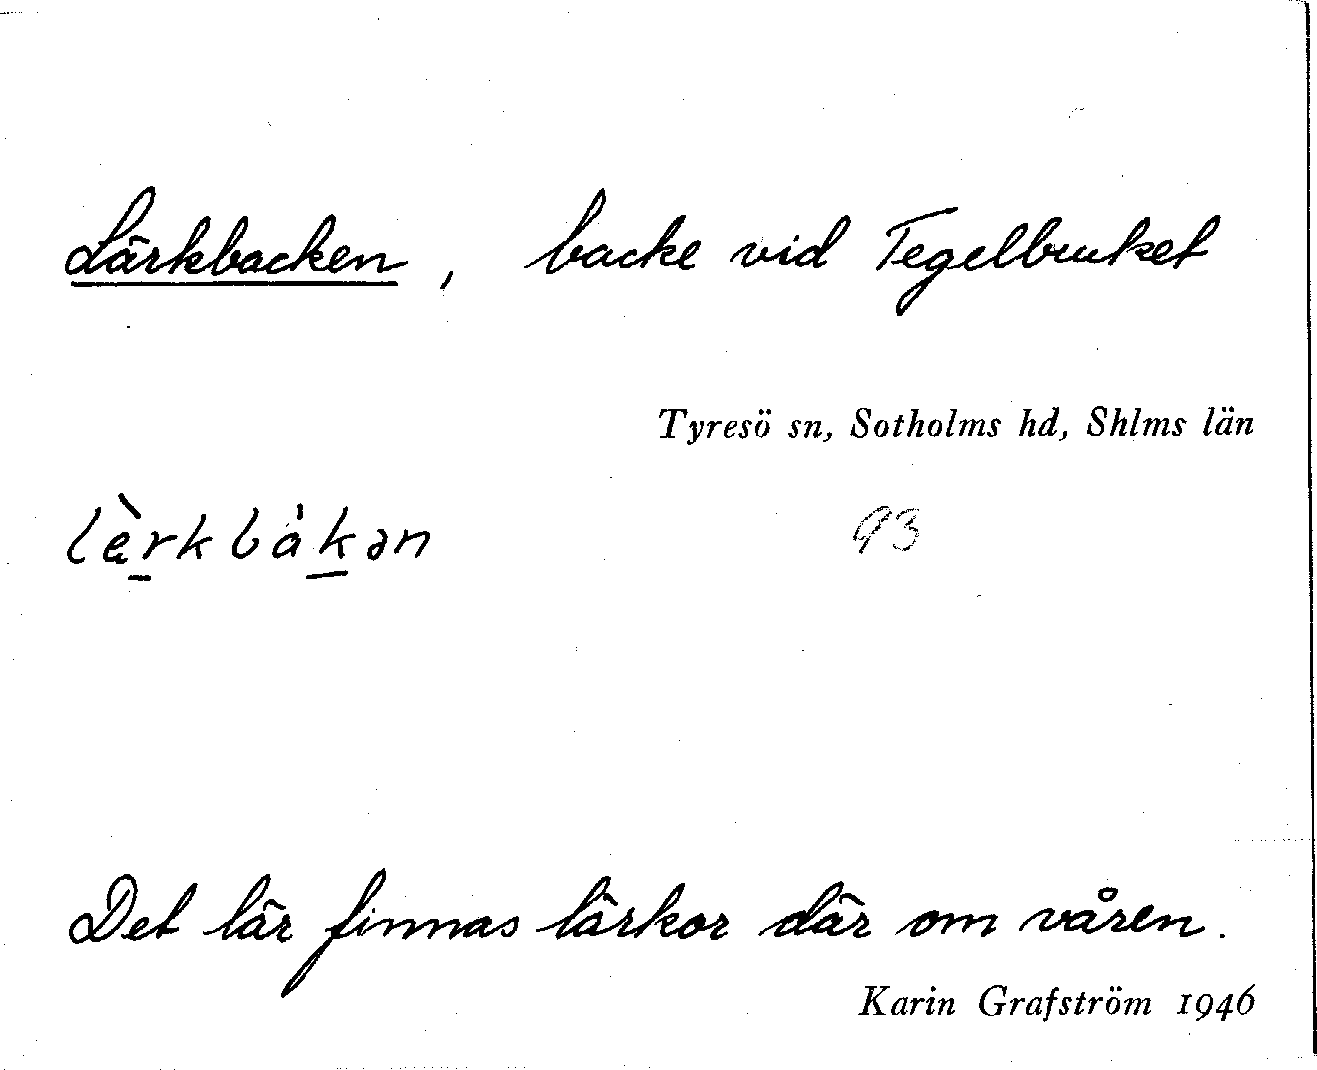 Lärkbacken, backe vid Tegelbruket
Tyresö sn, Sotholms hd, Shlms län
lèrkbàkən 93
Det lär finnas lärkor där om våren.
Karin Grafström 1946